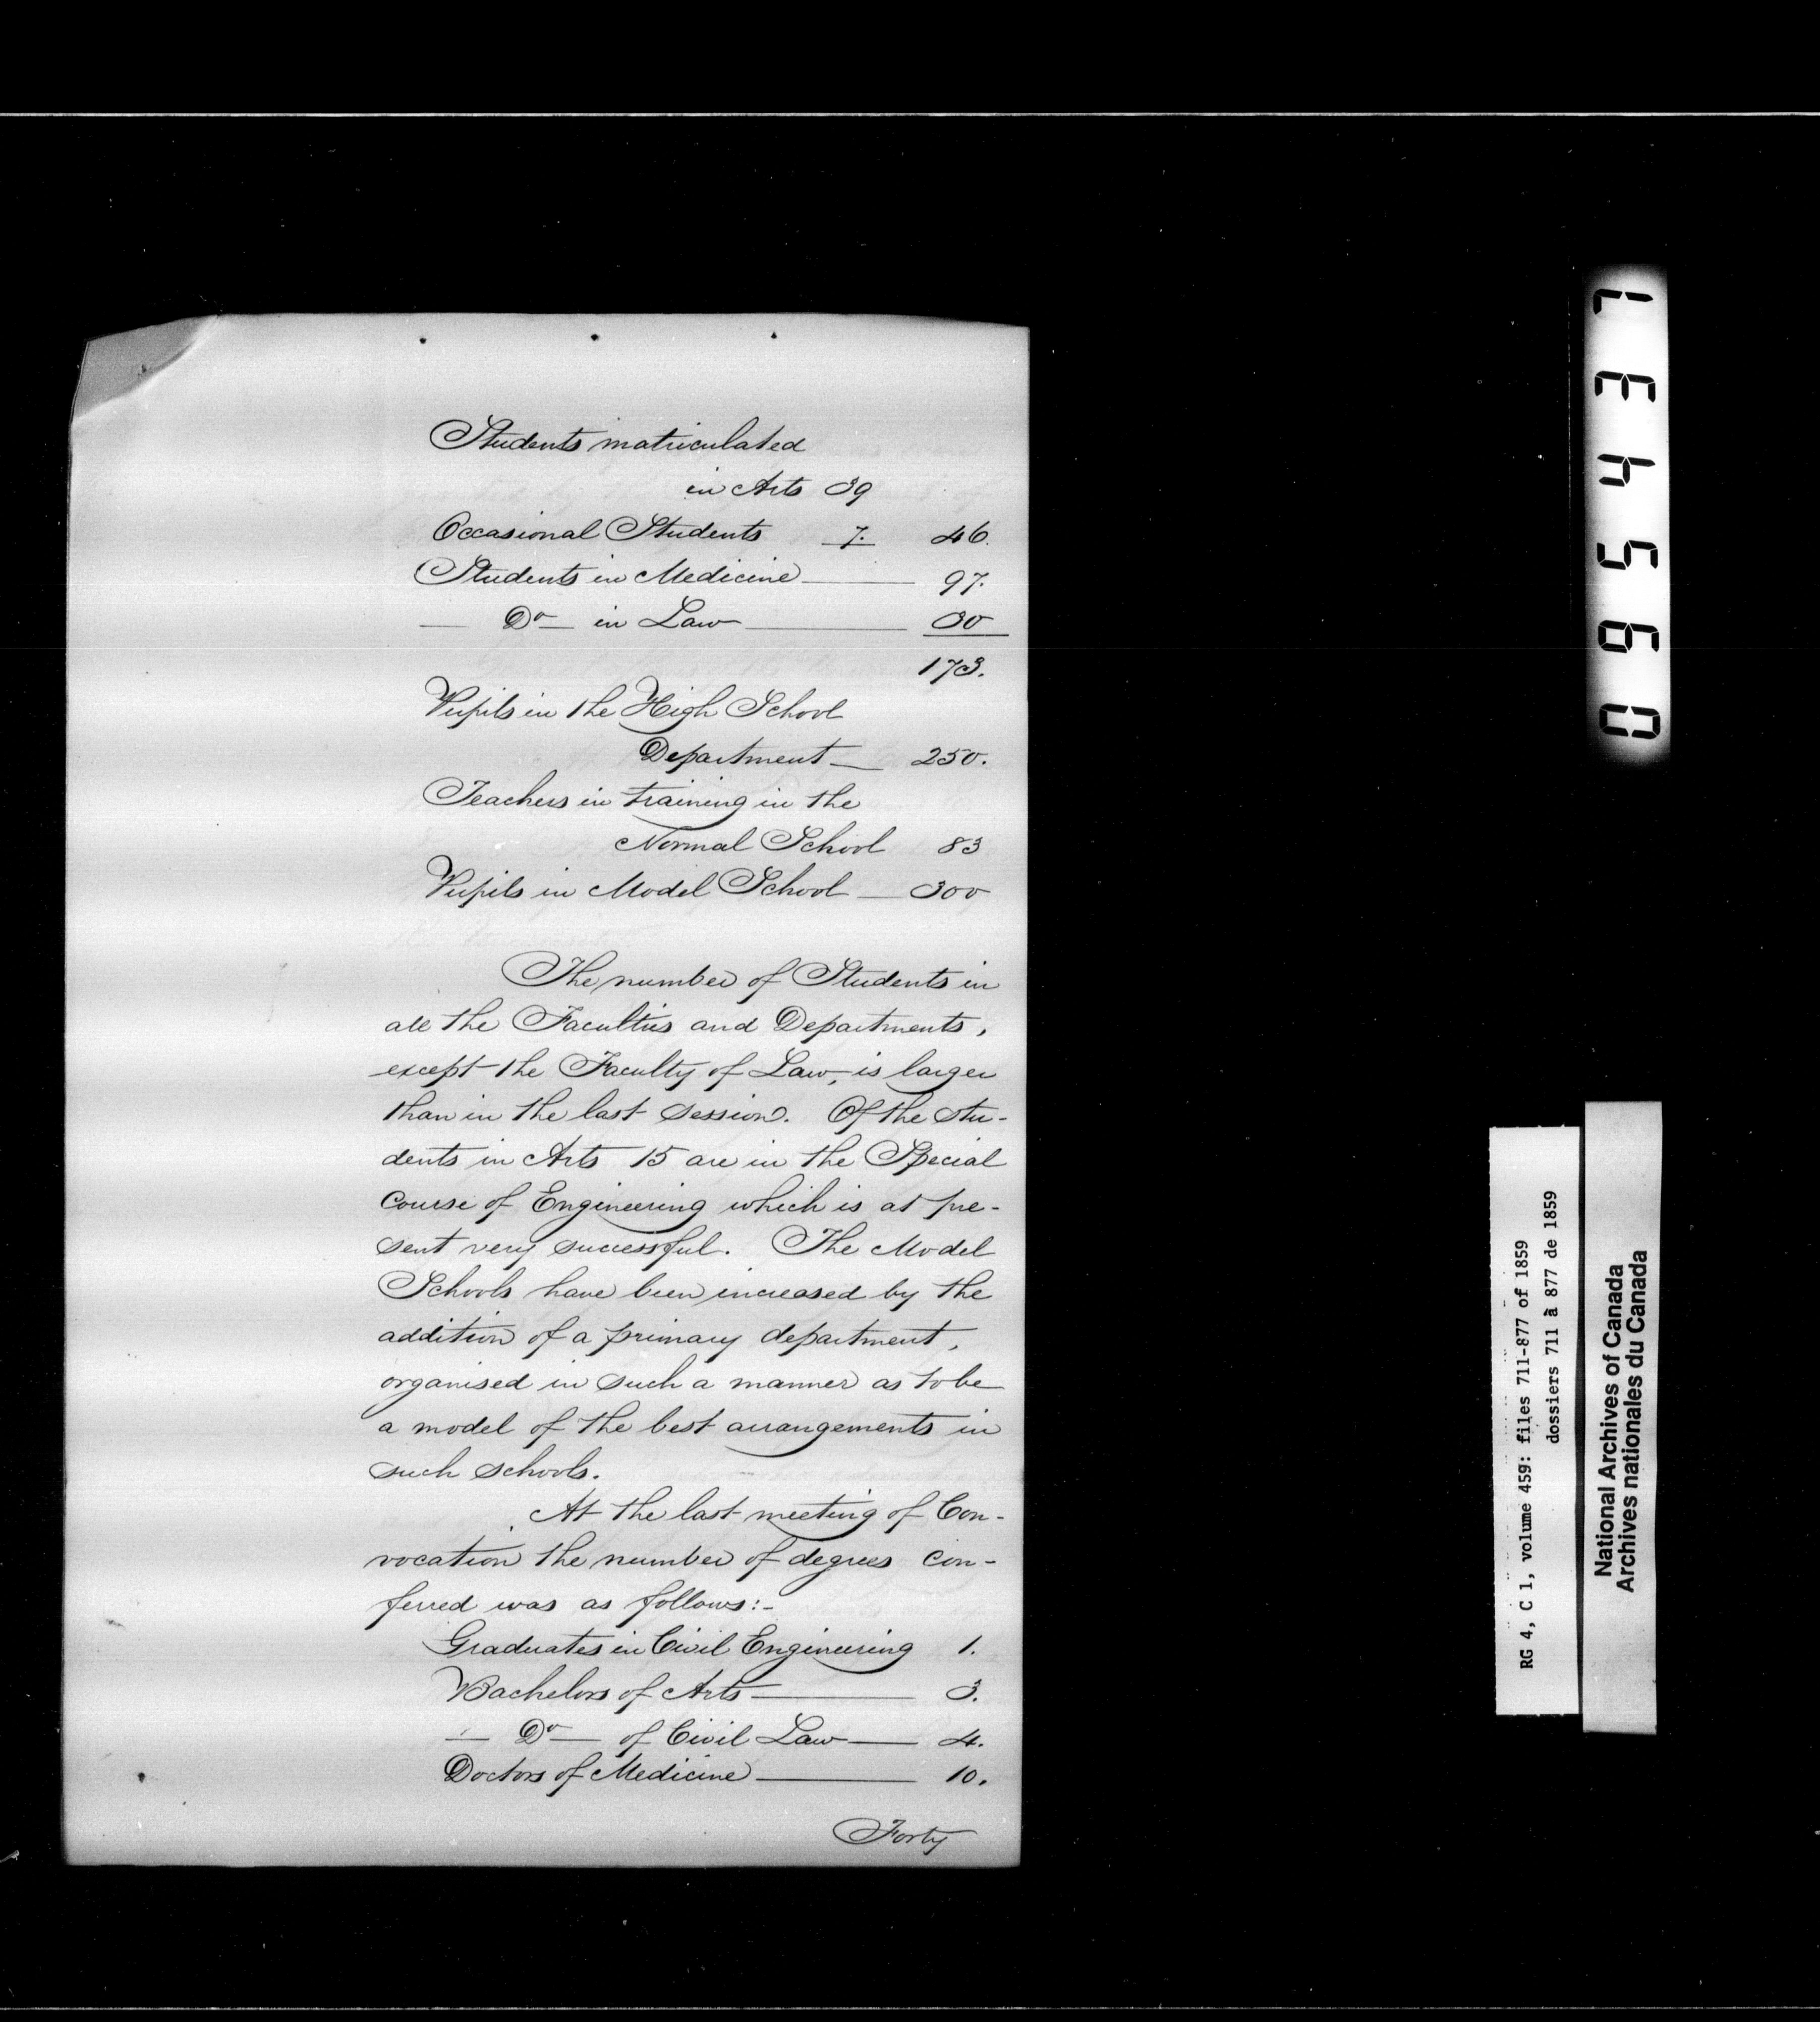 Students matriculated
in Arts 39
Occasional Students 7. 46.
Students in Medicine — 97.
— Do — in Law — 30
173.
Pupils in the High School
Department — 250.
Teachers in training in the
Normal School 83
Pupils in Model School — 300
The number of Students in
all the Faculties and Departments,
except the Faculty of Law, is larger
than in the last session. Of the stu-
dents in Arts 15 are in the Special
Course of Engineering which is at pre-
sent very successful. The Model
Schools have been increased by the
addition of a primary department,
organised in such a manner as to be
a model of the best arrangements in
such schools.
At the last meeting of Con-
vocation the number of degrees con-
ferred was as follows:-
Graduates in Civil Engineering 1.
Bachelors of Arts — 3.
— Do — of Civil Law — 4.
Doctors of Medicine — 10.
Forty
095437
RG 4, C 1, volume 459: files 711-877 of 1859
dossiers 711 à 877 de 1859
National Archives of Canada
Archives nationales du Canada